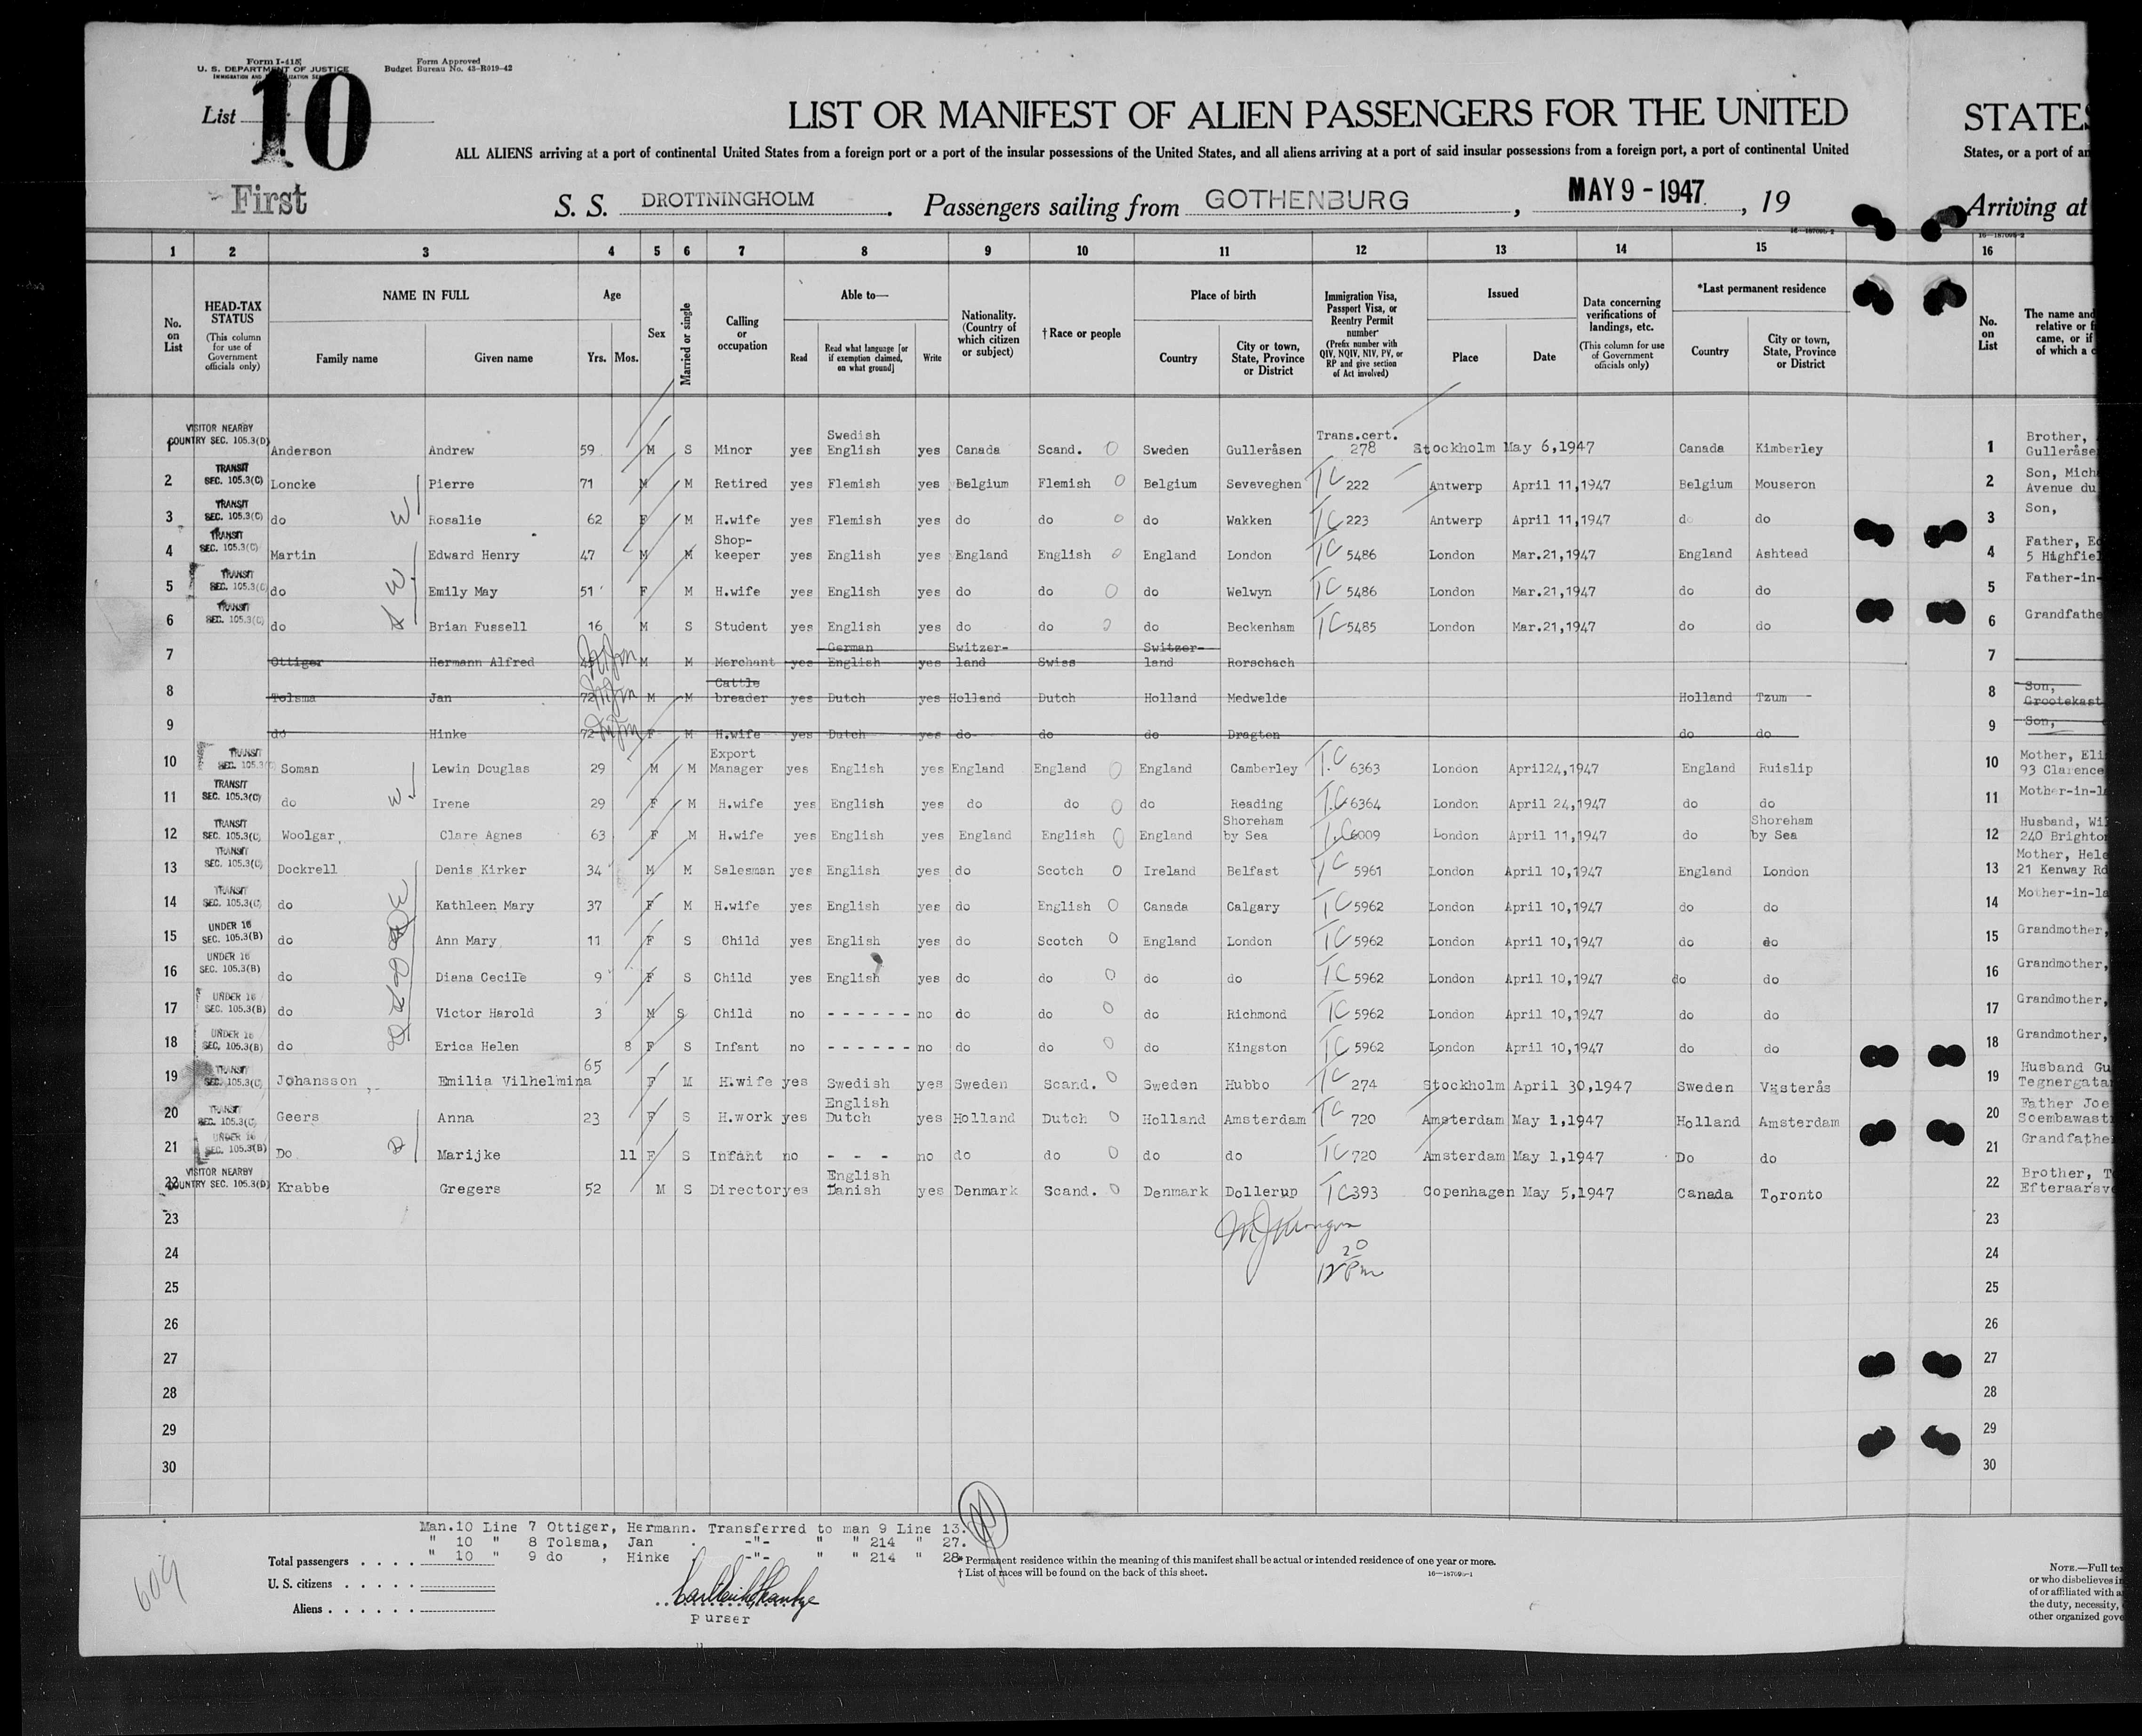 Form I-415
U. S. DEPARTMENT OF JUSTICE
Form Approved
Budget Bureau No. 43-R019-42
List 10
LIST OR MANIFEST OF ALIEN PASSENGERS FOR THE UNITED STATES
ALL ALIENS arriving at a port of continental United States from a foreign port or a port of the insular possessions of the United States, and all aliens arriving at a port of said insular possessions from a foreign port, a port of continental United States, or a port of
First S. S. DROTTNINGHOLM. Passengers sailing from GOTHENBURG, MAY 9 - 1947, 19 Arriving at
1 2 3 4 5 6 7 8 9 10 11 12 13 14 15 16
No. on List
HEAD-TAX STATUS (This column for use of Government officials only)
NAME IN FULL Family name Given name
Age Yrs. Mos.
Sex
Married or single
Calling or occupation
Able to— Read Read what language [or if exemption claimed, on what ground] Write
Nationality. (Country of which citizen or subject)
†Race or people
Place of birth Country City or town, State, Province or District
Immigration Visa, Passport Visa, or Reentry Permit number (Prefix number with QIV, NQIV, NIV, PV, or RP and give section of Act involved)
Issued Place Date
Data concerning verifications of landings, etc. (This column for use of Government officials only)
*Last permanent residence Country City or town, State, Province or District
No. on List
The name and
relative or
came, or if
of which a
1 VISITOR NEARBY COUNTRY SEC. 105.3(D) Anderson Andrew 59 M S Minor yes Swedish English yes Canada Scand. Sweden Gulleråsen Trans.cert. 278 Stockholm May 6,1947 Canada Kimberley 1 Brother, Gulleråse
2 TRANSIT SEC. 105.3(C) Loncke Pierre 71 M M Retired yes Flemish yes Belgium Flemish Belgium Seveveghen TC 222 Antwerp April 11,1947 Belgium Mouseron 2 Son, Mich Avenue du
3 TRANSIT SEC. 105.3(C) do W Rosalie 62 F M H.wife yes Flemish yes do do do Wakken TC 223 Antwerp April 11,1947 do do 3 Son,
4 TRANSIT SEC. 105.3(C) Martin Edward Henry 47 M M Shop-keeper yes English yes England English England London TC 5486 London Mar.21,1947 England Ashtead 4 Father, Ed 5 Highfiel
5 TRANSIT SEC. 105.3(C) do W Emily May 51 F M H.wife yes English yes do do do Welwyn TC 5486 London Mar.21,1947 do do 5 Father-in-
6 TRANSIT SEC. 105.3(C) do Brian Fussell 16 M S Student yes English yes do do do Beckenham TC 5485 London Mar.21,1947 do do 6 Grandfathe
7 Ottiger Hermann Alfred M M Merchant yes German English yes Switzer-land Swiss Switzer-land Rorschach 7
8 Tolsma Jan 72 M M Cattle breader yes Dutch yes Holland Dutch Holland Medwelde Holland Tzum 8 Son, Grootekast
9 do Hinke 72 F M H.wife yes Dutch yes do do do Dragten do do 9 Son,
10 TRANSIT SEC. 105.3 Soman Lewin Douglas 29 M M Export Manager yes English yes England England England Camberley T.C 6363 London April24,1947 England Ruislip 10 Mother, Eli 93 Clarence
11 TRANSIT SEC. 105.3(C) do W Irene 29 F M H.wife yes English yes do do do Reading T.C 6364 London April 24,1947 do do 11 Mother-in-la
12 TRANSIT SEC. 105.3(C) Woolgar Clare Agnes 63 F M H.wife yes English yes England English England Shoreham by Sea T.C 6009 London April 11,1947 do Shoreham by Sea 12 Husband, Wi 240 Brighto
13 TRANSIT SEC. 105.3(C) Dockrell Denis Kirker 34 M M Salesman yes English yes do Scotch Ireland Belfast TC 5961 London April 10,1947 England London 13 Mother, Hele 21 Kenway Rd
14 TRANSIT SEC. 105.3(C) do Kathleen Mary 37 F M H.wife yes English yes do English Canada Calgary TC 5962 London April 10,1947 do do 14 Mother-in-la
15 UNDER 16 SEC. 105.3(B) do Ann Mary 11 F S Child yes English yes do Scotch England London TC 5962 London April 10,1947 do do 15 Grandmother,
16 UNDER 16 SEC. 105.3(B) do Diana Cecile 9 F S Child yes English yes do do do do TC 5962 London April 10,1947 do do 16 Grandmother,
17 UNDER 16 SEC. 105.3(B) do Victor Harold 3 M S Child no - - - - - - no do do do Richmond TC 5962 London April 10,1947 do do 17 Grandmother,
18 UNDER 16 SEC. 105.3(B) do Erica Helen 8 F S Infant no - - - - - - no do do do Kingston TC 5962 London April 10,1947 do do 18 Grandmother,
19 TRANSIT SEC. 105.3(C) Johansson Emilia Vilhelmina 65 F M H.wife yes Swedish yes Sweden Scand. Sweden Hubbo TC 274 Stockholm April 30,1947 Sweden Västerås 19 Husband Gu Tegnergata
20 TRANSIT SEC. 105.3(C) Geers Anna 23 F S H.work yes English Dutch yes Holland Dutch Holland Amsterdam TC 720 Amsterdam May 1,1947 Holland Amsterdam 20 Father Joe Soembawast
21 UNDER 16 SEC. 105.3(B) Do D Marijke 11 F S Infant no - - - no do do do do TC 720 Amsterdam May 1,1947 Do do 21 Grandfathe
22 VISITOR NEARBY COUNTRY SEC. 105.3(D) Krabbe Gregers 52 M S Director yes English Danish yes Denmark Scand. Denmark Dollerup TC 393 Copenhagen May 5,1947 Canada Toronto 22 Brother, T Efteraarsv
23 23
24 24
12 20 Pm
25 25
26 26
27 27
28 28
29 29
30 30
Man.10 Line 7 Ottiger, Hermann. Transferred to man 9 Line 13.
" 10 " 8 Tolsma, Jan . -"- " " 214 " 27.
" 10 " 9 do , Hinke . -"- " " 214 " 28.
Total passengers . . . .
U. S. citizens . . . . .
Aliens . . . . . .
609
purser
* Permanent residence within the meaning of this manifest shall be actual or intended residence of one year or more.
† List of races will be found on the back of this sheet.
NOTE.—Full te
or who disbelieves in
of or affiliated with a
the duty, necessity,
other organized gove